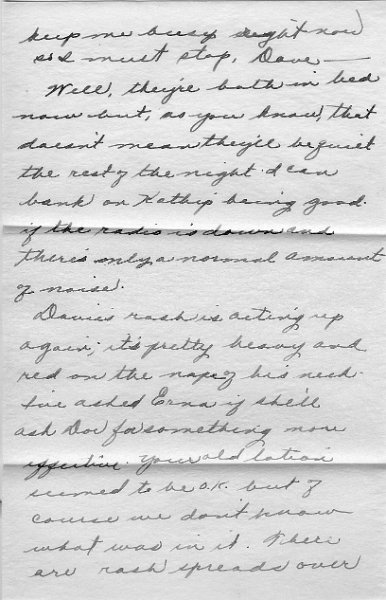 keep me busy right now
so I must stop, Dave —
Well, they're both in bed
now but, as you know, that
doesn't mean they'll be quiet
the rest of the night. I can
bank on Kathie being good
if the radio is down and
there's only a normal amount
of noise.
Davie's rash is acting up
again; it's pretty heavy and
red on the nape of his neck.
I've asked Erna if she'll
ask Doc for something more
effective. Your old lotion
seemed to be o.k. but of
course we don't know
what was in it. There
are rash spreads over